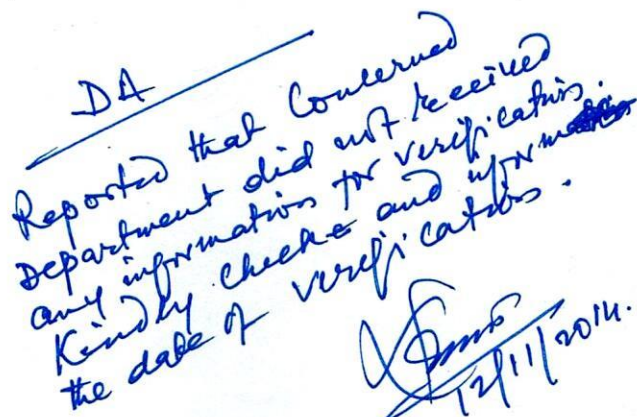 DA
Reported that Concerned
Department did not received
any information for verification.
Kindly check and inform
the date of verification.
12/11/2014.